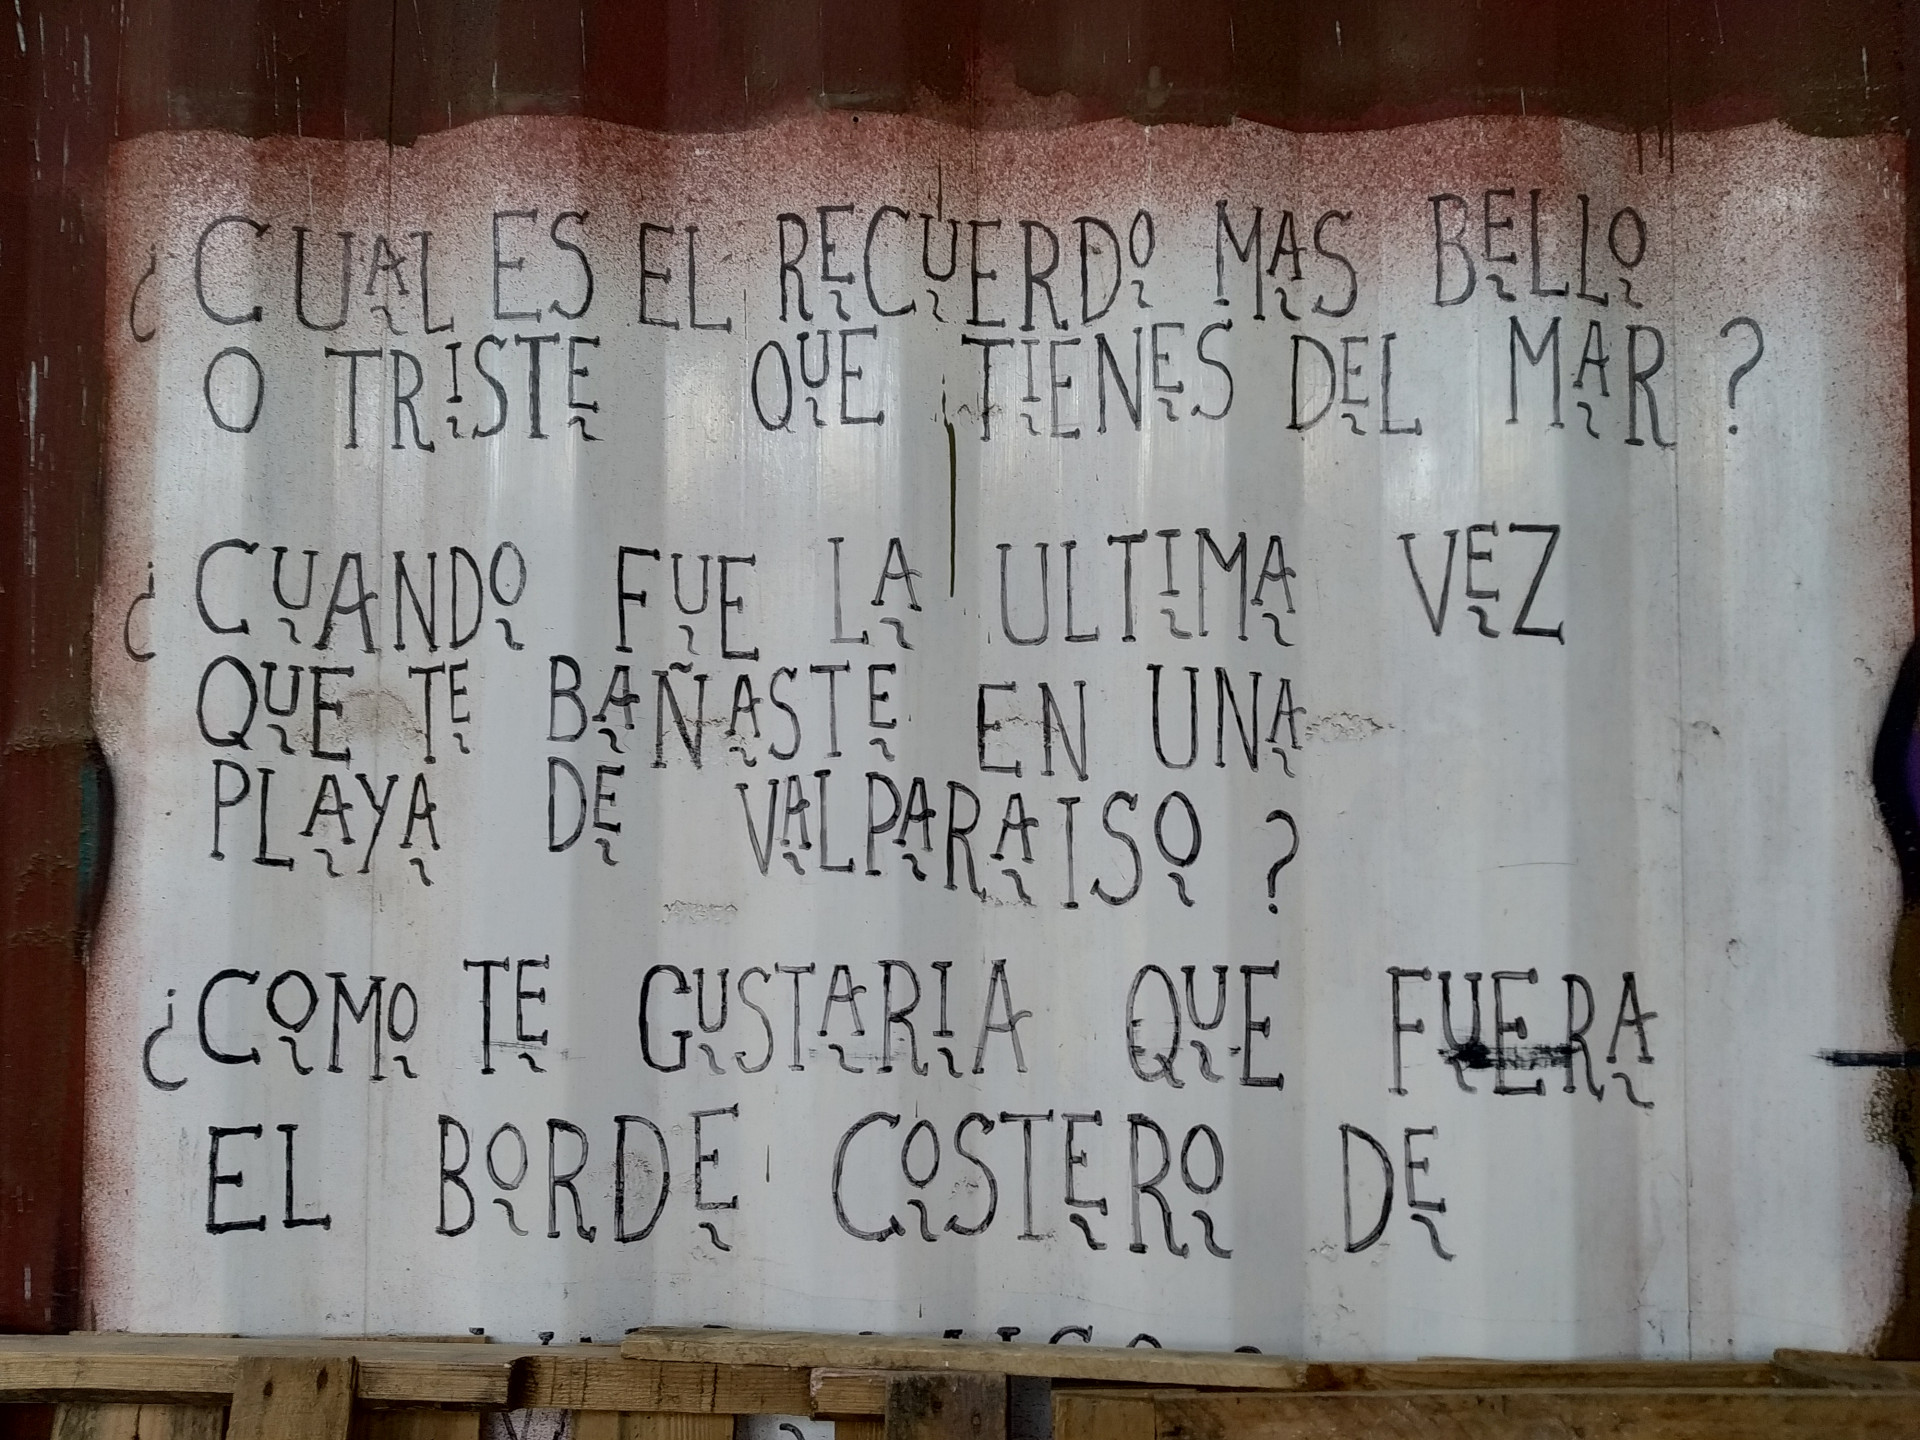 ¿CUAL ES EL RECUERDO MAS BELLO
O TRISTE QUE TIENES DEL MAR?
¿CUANDO FUE LA ULTIMA VEZ
QUE TE BAÑASTE EN UNA
PLAYA DE VALPARAISO?
¿COMO TE GUSTARIA QUE FUERA
EL BORDE COSTERO DE